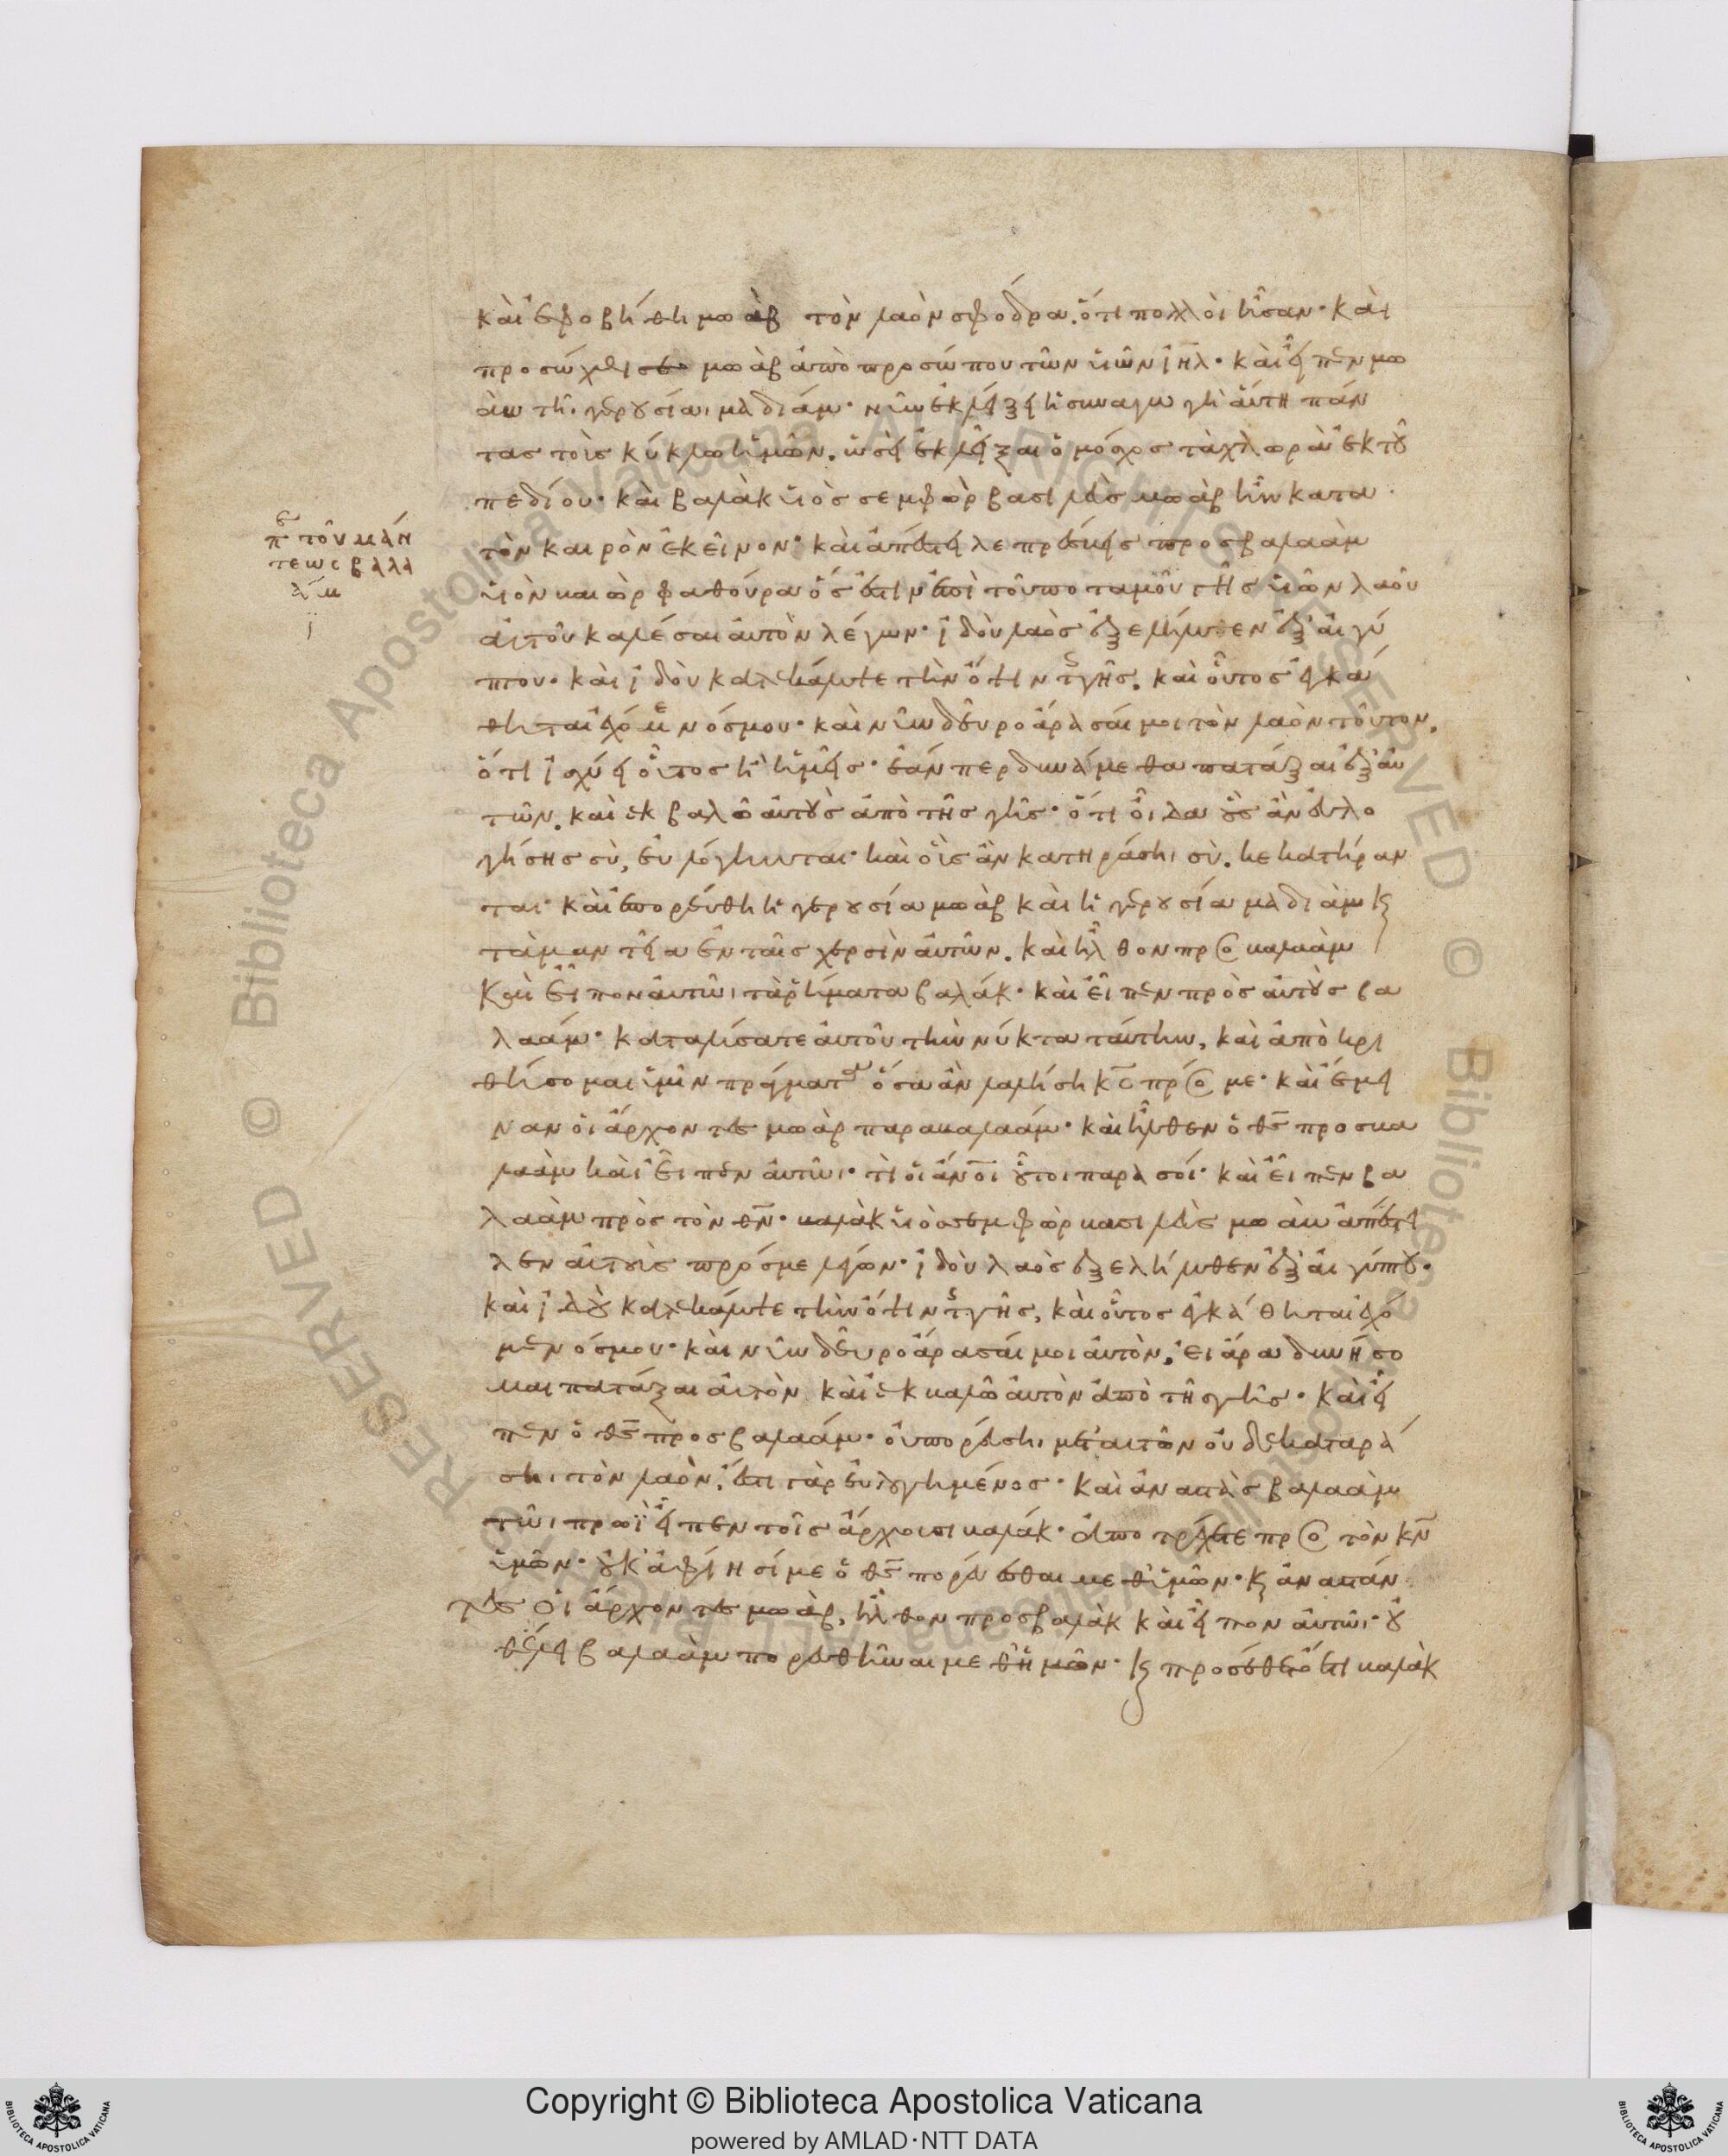 καὶ ἐφοβήθη μωὰβ τὸν λαὸν σφόδρα. ὅτι πολλοὶ ἦσαν· καὶ
προσώχθισε μωὰβ ἀπὸ προσώπου τῶν υἱῶν ι̅η̅λ̅· καὶ εἶπεν μω
ὰβ τῆι γερουσίαι μαδιάμ· νῦν ἐκλείξει ἡ συναγωγὴ αὕτη πάν
τας τοὺς κύκλω ἡμῶν. ὡσεὶ ἐκλείξαι ὁ μόσχος τὰ χλωρὰ ἐκ τοῦ
πεδίου· καὶ βαλὰκ υἱὸς σεμφὼρ βασιλεὺς μωὰβ ἦν κατα
τὸν καιρὸν ἐκεῖνον· καὶ ἀπέστειλε πρέσβεις προς βαλαὰμ
υἱὸν βαιὼρ φαθούρα ὅς ἐστιν ἐπὶ τοῦ ποταμοῦ γῆς υἱῶν λαοῦ
αὐτοῦ καλέσαι αὐτὸν λέγων· ἰδοὺ λαὸς ἐξελήλυθεν ἐξ αἰγύ
πτου· καὶ ἰδοὺ κατεκάλυψε τὴν ὄψιν τῆς γῆς. καὶ οὗτος ἐγκά
θηται ἐχόμενός μου· καὶ νῦν δεῦρο ἄρασαί μοι τὸν λαὸν τοῦτον.
ὅτι ἰσχύει οὗτος ἢ ἡμεῖς· ἐάν περ δυνάμεθα πατάξαι ἐξ αὐ
τῶν. καὶ ἐκβαλῶ αὐτοὺς ἀπὸ τῆς γῆς· ὅτι οἶδα οὓς ἂν εὐλο
γήσης σὺ, εὐλόγηνται· καὶ οὓς ἂν καταράσηι σὺ. κεκατήραν
ται· καὶ ἐπορεύθη ἡ γερουσία μωὰβ καὶ ἡ γερουσία μαδιὰμ κ̣
τὰ μαντεῖα ἐν ταῖς χερσὶν αὐτῶν. καὶ ἦλθον πρὸς βαλαὰμ
καὶ εἶπον αὐτῶι τὰ ῥήματα βαλάκ· καὶ εἶπεν πρὸς αὐτοὺς βα
λαάμ· καταλύσατε αὐτοῦ τὴν νύκτα ταύτην, καὶ ἀποκρι
θήσομαι ὑμῖν πράγματα ὅσα ἂν λαλήση κ̅ς̅ πρός με· καὶ ἔμει
ναν οἱ ἄρχοντες μωὰβ παρα βαλαάμ· καὶ ἦλθεν ὁ θ̅ς̅ προς βα
λαὰμ καὶ εἶπεν αὐτῶι· τί οἱ ἄν̅ο̅ι οὗτοι παρὰ σοί· καὶ εἶπεν βα
λαὰμ πρὸς τὸν θ̅ν̅· βαλὰκ υἱὸς σεμφὼρ βασιλεὺς μωὰβ ἀπέστει
λεν αὐτοὺς πρός με λέγων· ἰδοὺ λαὸς ἐξελήλυθεν ἐξ αἰγύπτου·
καὶ ἰδοὺ κατεκάλυψε τὴν ὄψιν τῆς γῆς, καὶ οὗτος ἐγκάθηται ἐχό
μενός μου· καὶ νῦν δεῦρο ἄρασαί μοι αὐτὸν. εἰ ἄρα δυνήσο
μαι πατάξαι αὐτὸν καὶ ἐκβαλῶ αὐτὸν ἀπὸ τῆς γῆς· καὶ εἶ
πεν ὁ θ̅ς̅ προς βαλαάμ· οὐ πορεύσηι μετ' αὐτῶν οὐδὲ καταρά
σηι τὸν λαὸν. ἔστι γὰρ εὐλογημένος· καὶ ἀναστὰς βαλαὰμ
τῶι πρωῒ εἶπεν τοῖς ἄρχουσι βαλάκ· ἀποτρέχετε πρὸς τὸν κ̅ν̅
ὑμῶν· οὐκ ἀφίησί με ὁ θ̅ς̅ πορεύεσθαι μεθ' ὑμῶν· κ̣ ἀναστάν
τες οἱ ἄρχοντες μωὰβ, ἦλθον προς βαλὰκ καὶ εἶπον αὐτῶι· οὐ
θέλει βαλαὰμ πορευθῆναι μεθ' ἡμῶν· κ̣ προσέθετο ἔτι βαλὰκ
π ε τοῦ μάν
τεως βαλα
άμ